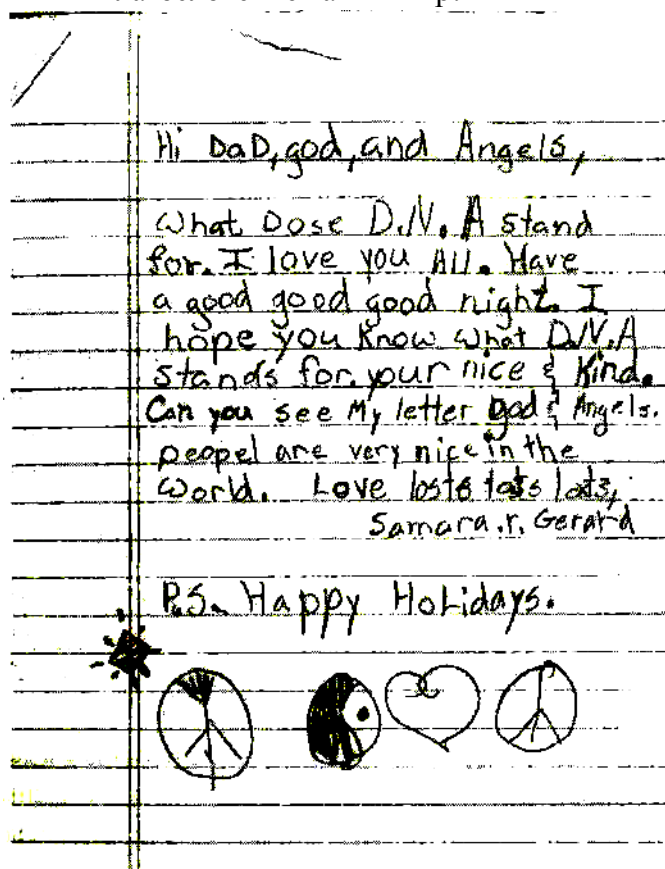 Hi DaD, god, and Angels,
what Dose D.N. A stand
for. I love you All. Have
a good good good night. I
hope you know what D.N.A
stands for. your nice & kind.
Can you see My letter god & Angels.
peopel are very nice in the
world. Love losts lots lots,
Samara .r. Gerard
P.S. Happy Holidays.